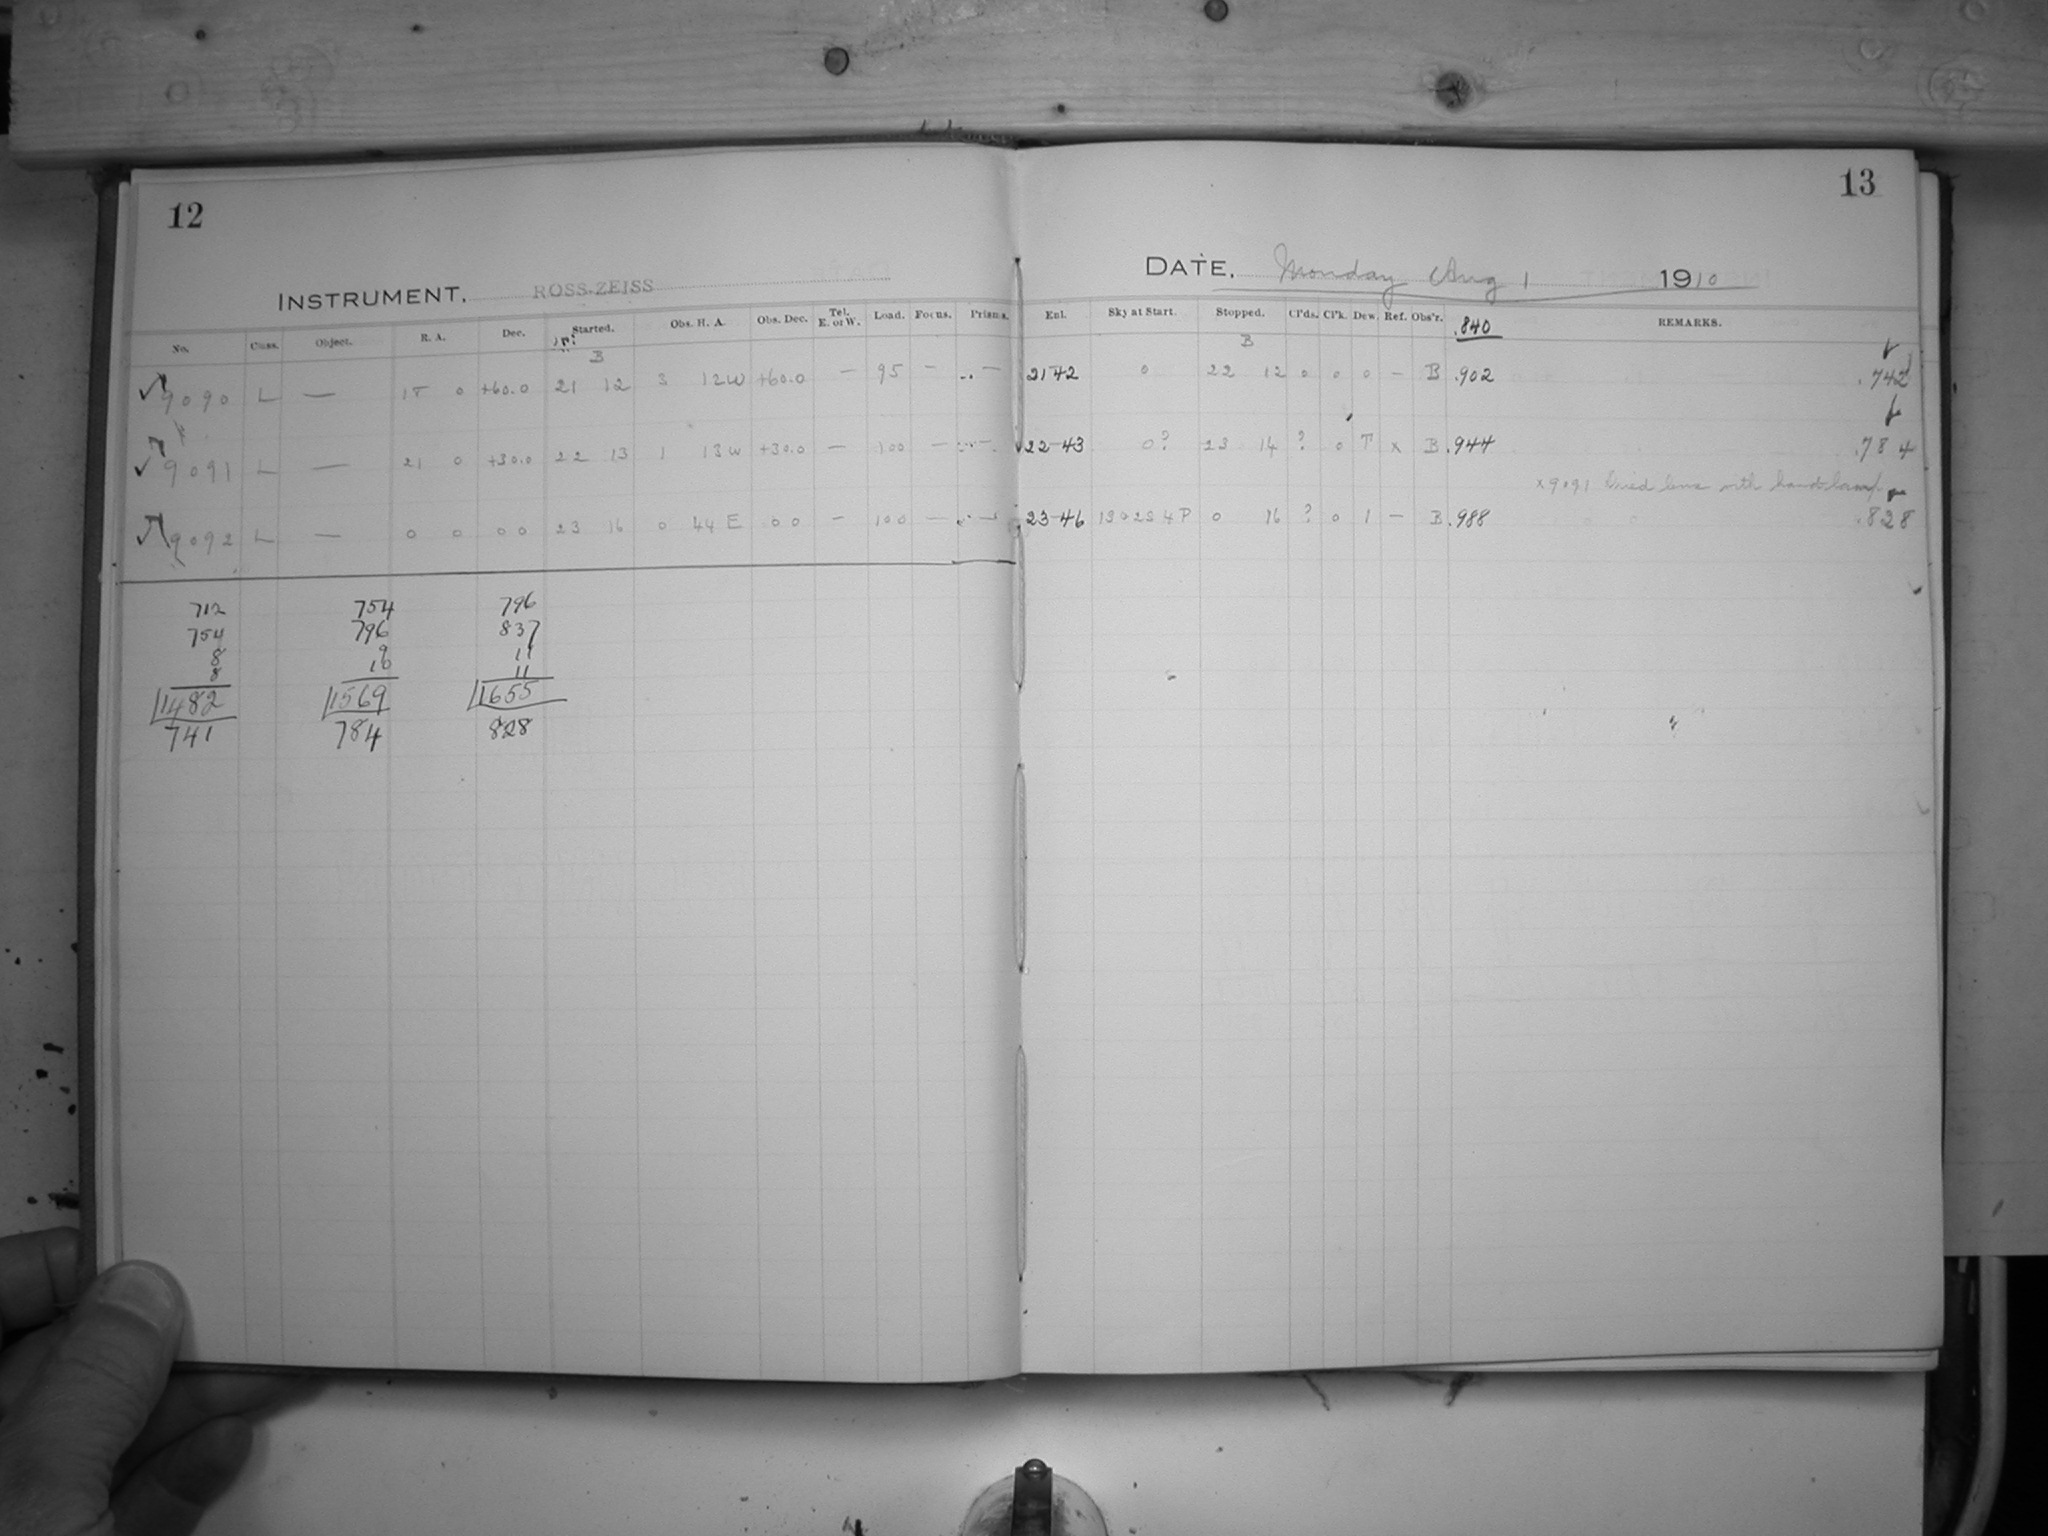 12
INSTRUMENT, ROSS-ZEISS
No. Class. Object. R. A. Dec. Started. Obs. H. A. Obs. Dec. Tel. E. or W. Load. Focus. Prisms.
B
9090 L — 18 0 +60.0 21 12 3 12W +60.0 — 95 — —
9091 L — 21 0 +30.0 22 13 1 13W +30.0 — 100 — —
9092 L — 0 0 00 23 16 0 44E 00 — 100 — —
712 754 796
754 796 837
8 9 11
8 10 11
1482 1569 1655
741 784 828
13
DATE, Monday Aug 1 1910
Enl. Sky at Start. Stopped. Cl'ds. Cl'k. Dew. Ref. Obs'r. .840 REMARKS.
B
2142 0 22 12 0 0 0 — B .902 .742
22-43 0? 23 14 ? 0 T x B .944 .784
x 9091 Dried lens with hand lamp
23-46 13 0 2S 4P 0 16 ? 0 1 — B .988 .828